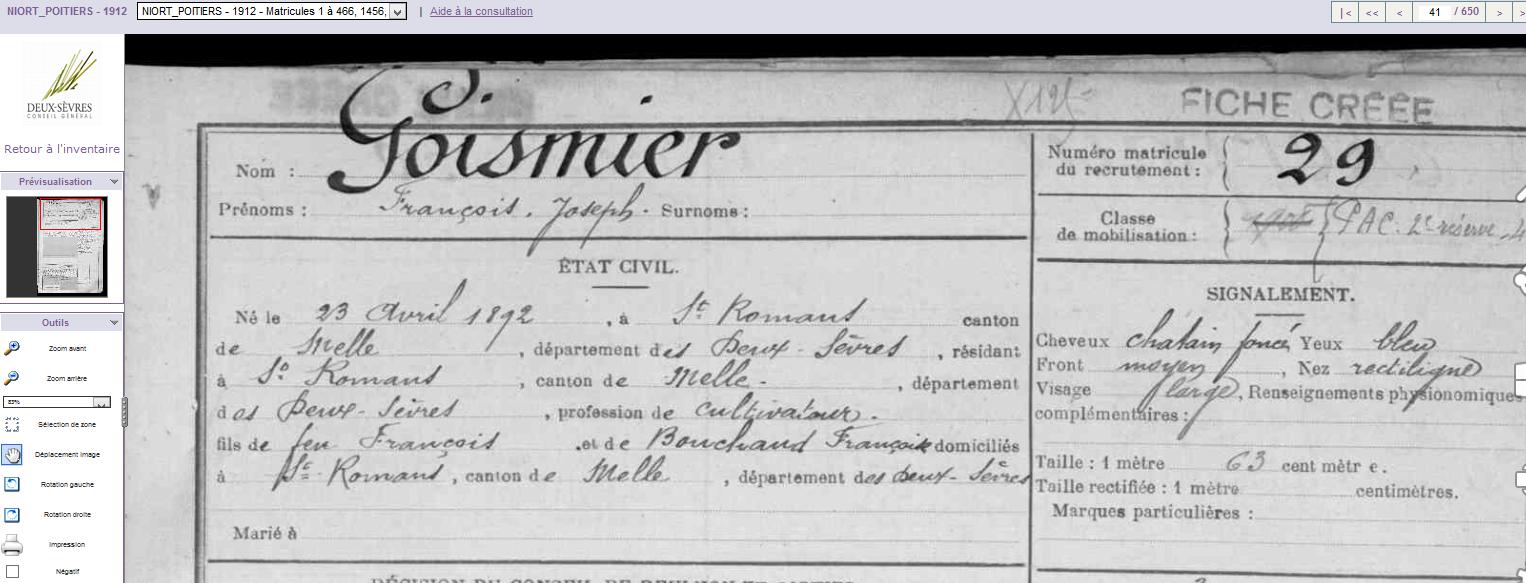 NIORT_POITIERS - 1912
NIORT_POITIERS - 1912 - Matricules 1 à 466, 1456,
| Aide à la consultation
|< << < 41 / 650 > >
DEUX-SÈVRES
CONSEIL GÉNÉRAL
Retour à l'inventaire
Prévisualisation
Outils
Zoom avant
Zoom arrière
Sélection de zone
Déplacement image
Rotation gauche
Rotation droite
Impression
Négatif
FICHE CRÉÉE
Nom : Goismier
Prénoms : François, Joseph. Surnoms :
ÉTAT CIVIL.
Né le 23 Avril 1892, à St Romans canton
de Melle, département des Deux-Sèvres, résidant
à St Romans, canton de Melle, département
des Deux-Sèvres, profession de cultivateur.
fils de feu François et de Bouchaud Françoise domiciliés
à St Romans, canton de Melle, département des Deux-Sèvres
Marié à
Numéro matricule
du recrutement : 29
Classe
de mobilisation : PAC. 2e réserve
SIGNALEMENT.
Cheveux chatain foncé Yeux bleu
Front moyen, Nez rectiligne
Visage large, Renseignements physionomiques
complémentaires :
Taille : 1 mètre 63 centimètre.
Taille rectifiée : 1 mètre centimètres.
Marques particulières :